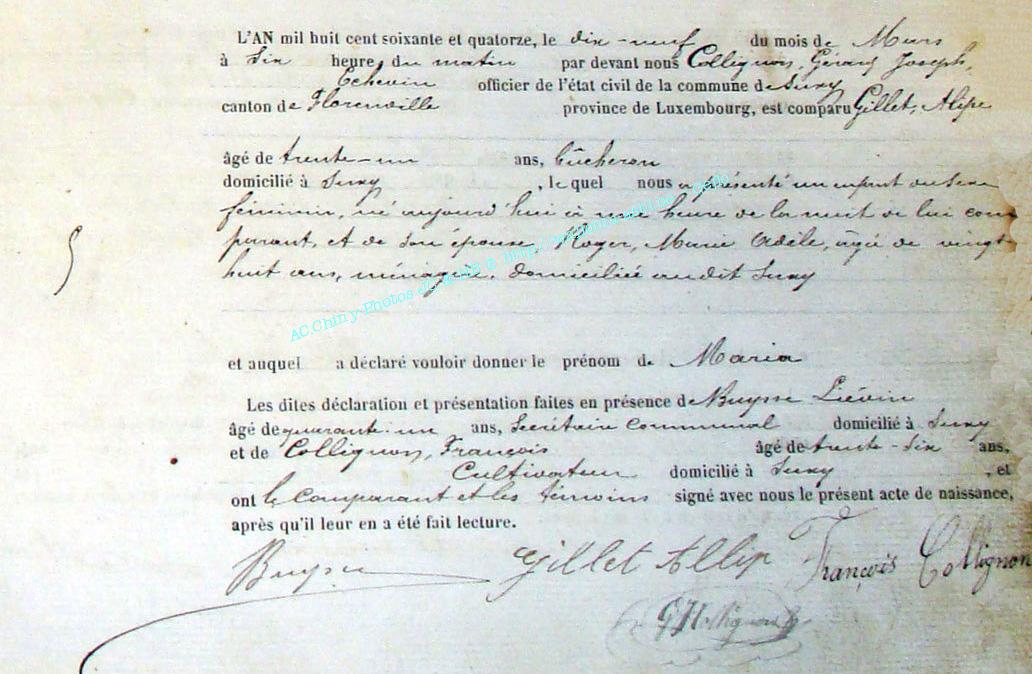 L'AN mil huit cent soixante et quatorze, le dix-neuf du mois de Mars
à Six heures du matin par devant nous Collignon, Gérard Joseph,
Echevin officier de l'état civil de la commune de Suxy
canton de Florenville province de Luxembourg, est comparu Gillet, Alipe
âgé de trente-un ans, bûcheron
domicilié à Suxy, lequel nous a présenté un enfant du sexe
féminin, né aujourd'hui à une heure de la nuit de lui com
parant, et de son épouse Roger, Marie Adèle, âgée de vingt-
huit ans, ménagère, domiciliée audit Suxy
AC.Chiny-Photos
et auquel a déclaré vouloir donner le prénom de Maria
Les dites déclaration et présentation faites en présence de Buysse Liévin
âgé de quarante-un ans, Secrétaire communal domicilié à Suxy
et de Collignon, François âgé de trente-six ans,
Cultivateur domicilié à Suxy, et
ont le comparant et les témoins signé avec nous le présent acte de naissance,
après qu'il leur en a été fait lecture.
Buysse Gillet Allip François Collignon
GJCollignon